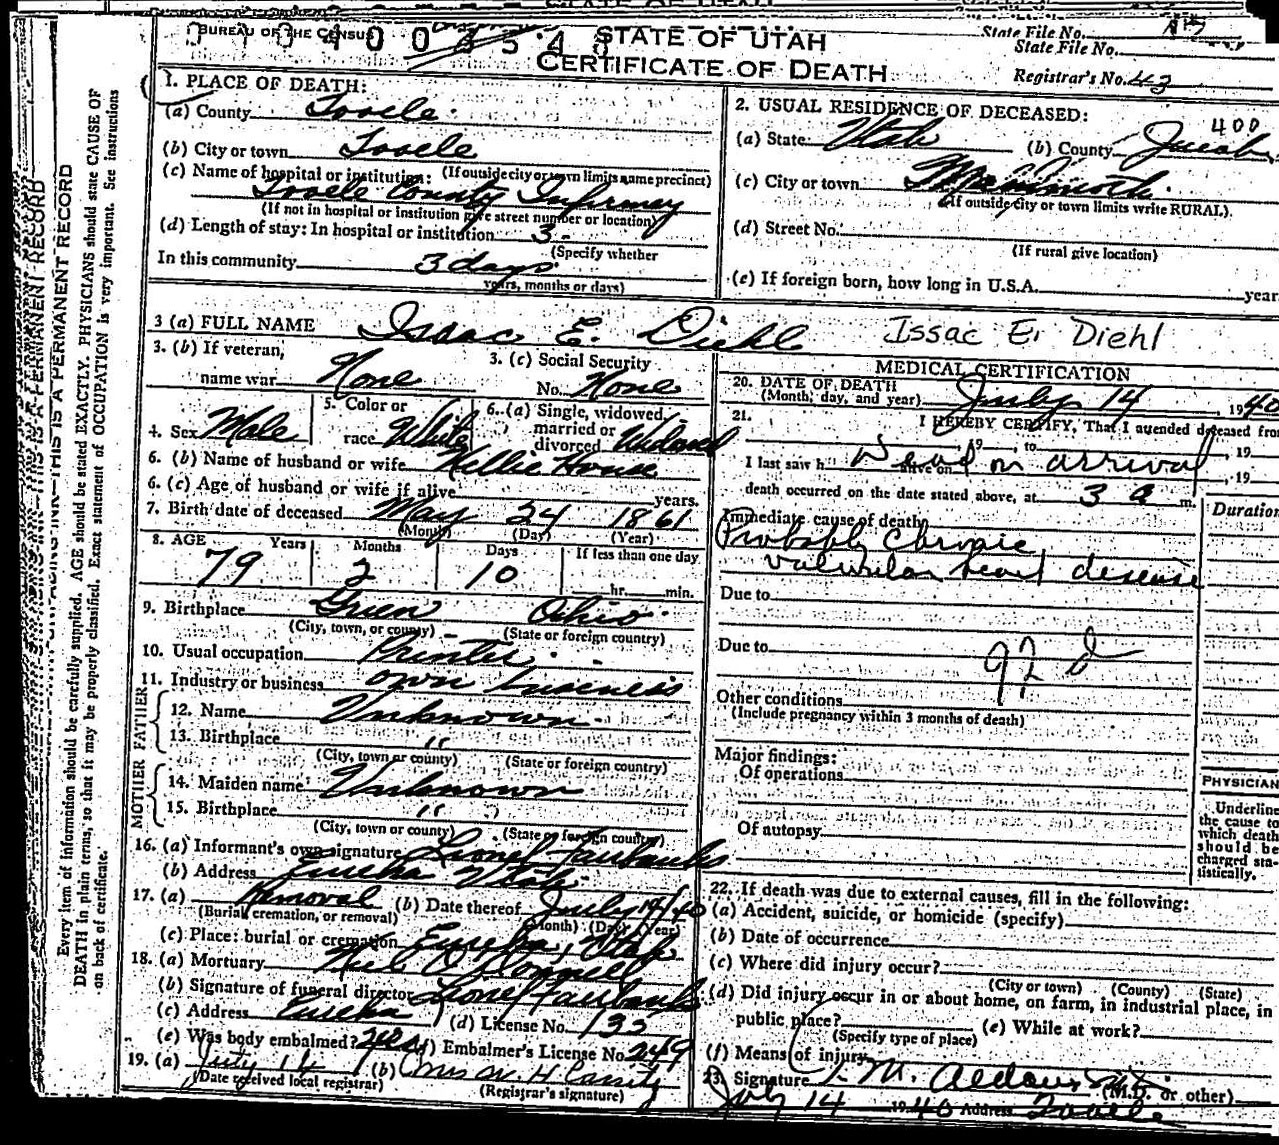 STATE OF UTAH
BUREAU OF THE CENSUS
STATE OF UTAH
CERTIFICATE OF DEATH
State File No.
State File No.
Registrar's No. 43
Every item of information should be carefully supplied. AGE should be stated EXACTLY. PHYSICIANS should state CAUSE OF
DEATH in plain terms, so that it may be properly classified. Exact statement of OCCUPATION is very important. See instructions
on back of certificate.
THIS IS A PERMANENT RECORD
1. PLACE OF DEATH:
(a) County Tooele
(b) City or town Tooele
(If outside city or town limits name precinct)
(c) Name of hospital or institution:
Tooele County Infirmary
(If not in hospital or institution give street number or location)
(d) Length of stay: In hospital or institution 3
(Specify whether
In this community 3 days
years, months or days)
2. USUAL RESIDENCE OF DECEASED:
400
(a) State Utah (b) County Juab
(c) City or town Mammoth
(If outside city or town limits write RURAL).
(d) Street No.
(If rural give location)
(e) If foreign born, how long in U.S.A. year
3 (a) FULL NAME Isaac E. Diehl Issac E. Diehl
3. (b) If veteran,
name war None
3. (c) Social Security
No. None
4. Sex Male
5. Color or
race White
6. (a) Single, widowed,
married or
divorced Widowed
6. (b) Name of husband or wife Nellie House
6. (c) Age of husband or wife if alive years.
7. Birth date of deceased May 24 1861
(Month) (Day) (Year)
8. AGE Years Months Days If less than one day
79 2 10 hr. min.
9. Birthplace Green Ohio
(City, town, or county) (State or foreign country)
10. Usual occupation Printer
11. Industry or business own buseness
FATHER
12. Name Unknown
13. Birthplace "
(City, town or county) (State or foreign country)
MOTHER
14. Maiden name Unknown
15. Birthplace "
(City, town or county) (State or foreign country)
16. (a) Informant's own signature Lionel Fairbanks
(b) Address Eureka Utah
17. (a) Removal (b) Date thereof July 14/40
(Burial, cremation, or removal) (Month) (Day) (Year)
(c) Place: burial or cremation Eureka, Utah
18. (a) Mortuary Neil O'Donnell
(b) Signature of funeral director Lionel Fairbanks
(c) Address Eureka (d) License No. 132
(e) Was body embalmed? yes (f) Embalmer's License No. 249
19. (a) July 14 (b) Mrs W. H. Cassity
(Date received local registrar) (Registrar's signature)
MEDICAL CERTIFICATION
20. DATE OF DEATH
(Month, day, and year) July 14, 1940
21. I HEREBY CERTIFY, That I attended deceased from
, 19 , to , 19
I last saw h alive on Dead on arrival , 19
death occurred on the date stated above, at 3 a m.
Immediate cause of death Duration
Probably Chronic
valvular heart desease
Due to
Due to
92 d
Other conditions
(Include pregnancy within 3 months of death)
Major findings:
Of operations
Of autopsy
PHYSICIAN
Underline
the cause to
which death
should be
charged sta-
tistically.
22. If death was due to external causes, fill in the following:
(a) Accident, suicide, or homicide (specify)
(b) Date of occurrence
(c) Where did injury occur?
(City or town) (County) (State)
(d) Did injury occur in or about home, on farm, in industrial place, in
public place? (e) While at work?
(Specify type of place)
(f) Means of injury
23. Signature M. (M.D. or other)
July 14 1940 Address Tooele